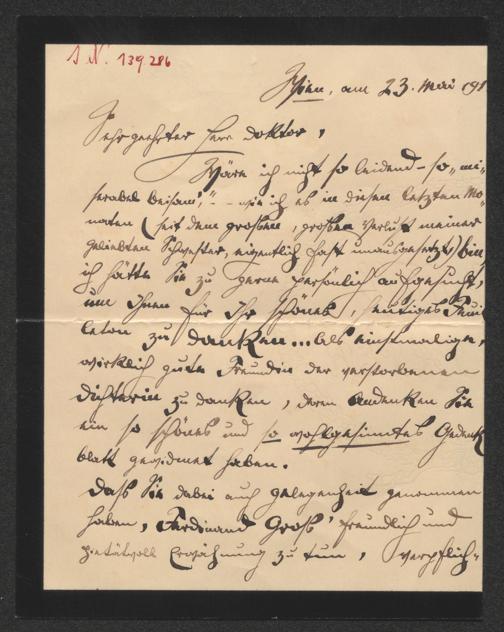 J. N. 139.286
Wien, am 23. Mai 191
Sehr geehrter Herr Doktor,
Wäre ich nicht so leidend – so „mi-
serabel beisam“, – wie ich es in diesen letzten Mo-
naten (seit dem großen, großen Verlust meiner
geliebten Schwester, eigentlich fast unausgesetzt) bin
ich hätte Sie zu gerne persönlich aufgesucht,
um Ihnen für Ihr schönes, heutiges Feuil
leton zu danken... als einstmalige,
wirklich gute Freundin der verstorbenen
Dichterin zu danken, deren Andenken Sie
ein so schönes und so wohlgesinntes Gedenk
blatt gewidmet haben.
Daß Sie dabei auch Gelegenheit genommen
haben, Ferdinand Groß' freundlich und
pietätvoll Erwähnung zu tun, verpflich-